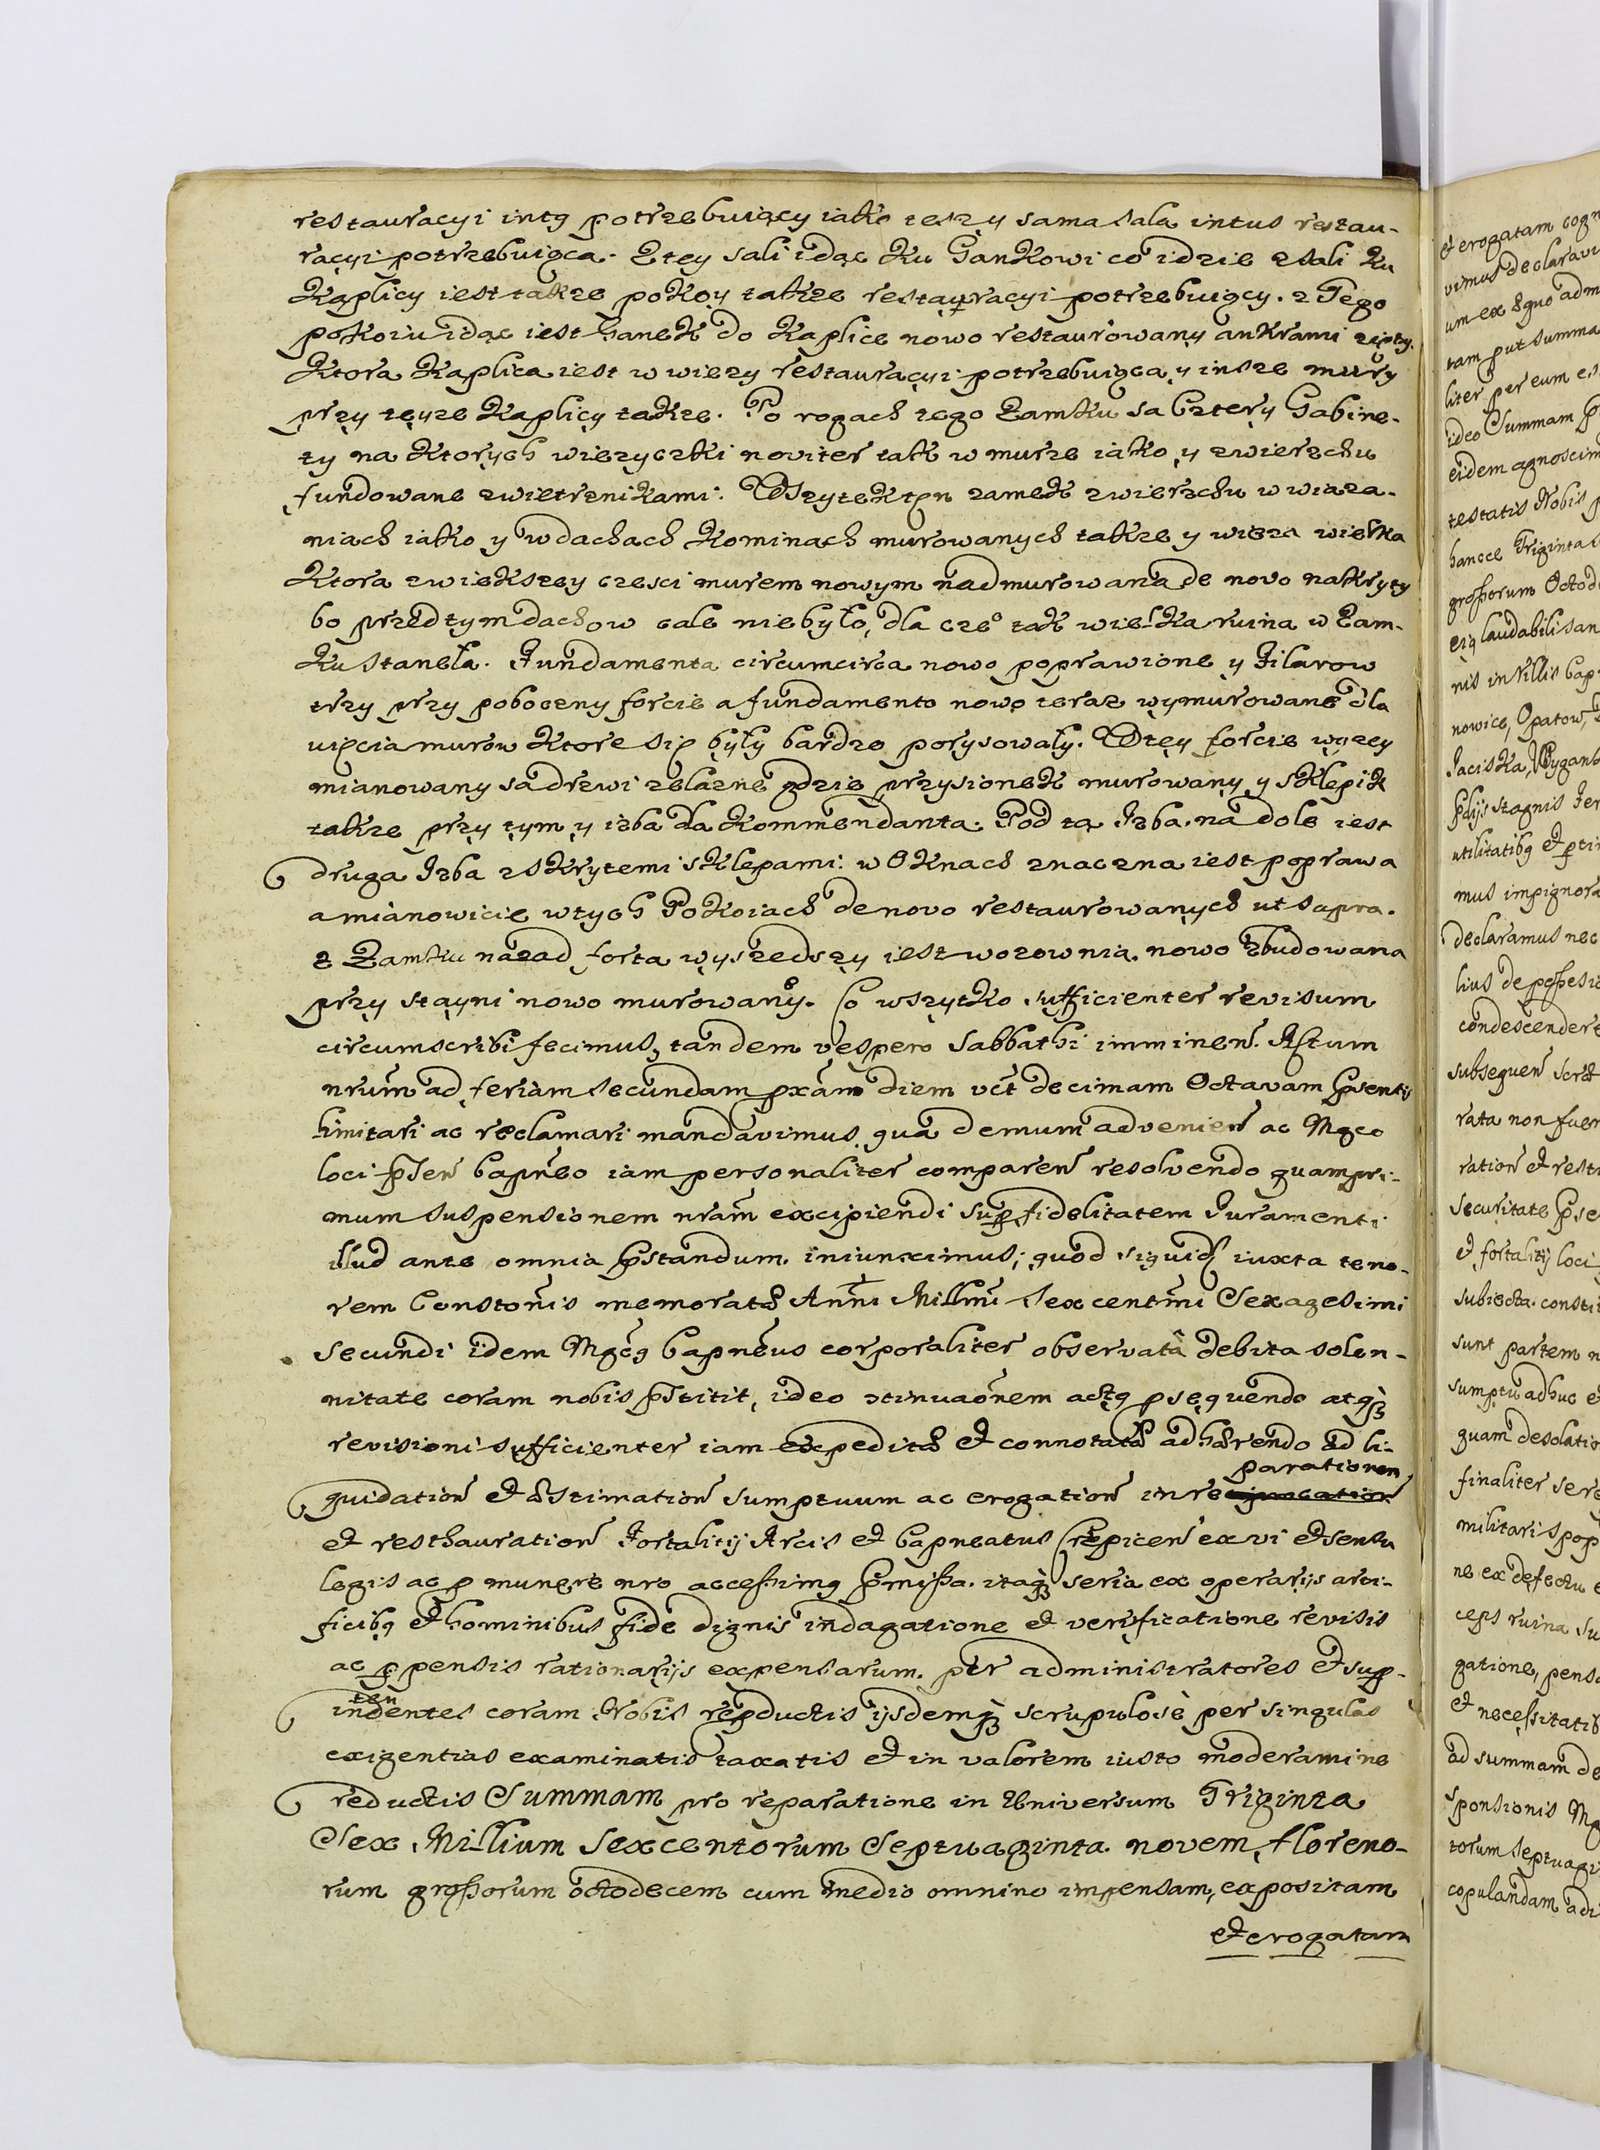 restauracyi intq potrzebuiący iako teszy sama sala intus restau-
racyi potrzebuiąca. Z tey sali idąc ku Gankowi co idzie z sali ku
Kaplicy iest takze pokoy takze restauracyi potrzebuiący. z Tego
pokoiu idąc iest Ganek do Kaplice nowo restaurowany ankrami
Ktora Kaplica iest w wiezy restauracyi potrzebuiąca y insze mury
przy teyze Kaplicy takze. Po rogach tego Zamku sa Cztery Gabine-
ty na Ktorych wiezyczki noviter tak w murze iako y zwierzchu
fundowane zwietrznikami. Wszytek ten zamek zwierzchu w wiaza-
niach iako y w dachach Kominach murowanych takze y wieza wielka
Ktora zwiekszey czesci murem nowym nadmurowana de novo nakryty
bo przed tym dachow cale niebyło, dla czeo tak wielka ruina w Zam-
ku staneła. Fundamenta circumcirca nowo poprawione y Filarow
trzy przy poboczny forcie a fundamento nowo teraz wymurowane dla
uięcia murow Ktore się były bardzo porysowały. W tey forcie wyzey
mianowany sa drzwi zelazne gdzie przysionek murowany y sklepik
takze przy tym y izba dla Kommendanta. Pod tą Izba na dole iest
druga Izba z skrytemi sklepami: w Oknach znaczna iest poprawa
a mianowicie w tych Pokoiach de novo restaurowanych ut supra.
z Zamku nazad forta wyszedszy iest wozownia nowo zbudowana
przy stayni nowo murowany. Co wszytko sufficienter revisum
circumscribi fecimus, tandem vespero Sabbathi imminen. Actum
nrum ad feriam secundam pxam diem vct decimam Octavam Psentis
limitari ac reclamari mandavimus, qua demum advenien ac Mgco
loci Psen Capneo iam personaliter comparen resolvendo quampri-
mum suspensionem nram excipiendi sup fidelitatem Iuramenti
illud ante omnia Pstandum iniunximus; quod siquid iuxta teno-
rem Constonis memoratæ Anni Millmi Sexcentmi Sexagesimi
Secundi idem Mgcq Capneus corporaliter observatâ debita solen-
nitate coram nobis Pstitit, ideo ɔtinuaonem actq psequendo atqȝ
revisioni sufficienter iam expeditæ et connotatæ adhærendo ad li-
paration
quidation et æstimation sumptuum ac erogation in re
et resthauration Fortalitij Arcis et Capneatus Crepicen ex vi et sensu
legis ac p munere nro accessimq Pmissa. itaqȝ seria ex operarijs arti-
ficibq et hominibus fide dignis indagatione et verificatione revisis
ac ppensis rationarijs expensarum per administratores et sup-
ten
indentes coram Nobis repductis ijsdemqȝ scrupulosè per singulas
exigentias examinatis taxatis et in valorem iusto moderamine
reductis Summam pro reparatione in Universum Triginta
Sex Millium Sexcentorum Septuaginta novem floreno-
rum grossorum octodecem cum medio omnino impensam, expositam
et erogatam
et erogatam cogn
vimus declaravi
um ex æquo adm
tam put summa
liter per eum ex
ideo Summam
eidem agnoscim
testatis Nobis
hancce Triginta
grossorum Octod
eiq laudabili san
nis in Villis Cap
nowice, Opatow,
Iaciska, Wygan
Pdijs stagnis
utilitatibq et ptin
mus impignora
declaramus nec
lius de possessio
condescendere
subsequen
rata non fuer
ration et resta
securitate Pse
et fortalitij loci
subiecta consti
sunt partem n
sumptu adhuc e
quam desolatio
finaliter
militaris pop
ne ex defectu
ceps ruina su
gatione, pens
et necessitatib
ad summam de
sponsionis Mg
torum septuagi
copulandam adi